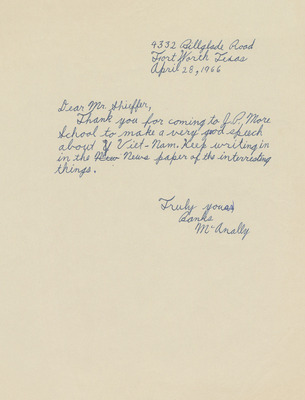 4332 Bellglade Road
Fort Worth Texas
April 28, 1966
Dear Mr. Shieffer,
Thank you for coming to J.P. More
School to make a very good speech
about Viet-Nam. Keep writing in
in the News paper of the interristing
things.
Truly yours
Banks
McAnally